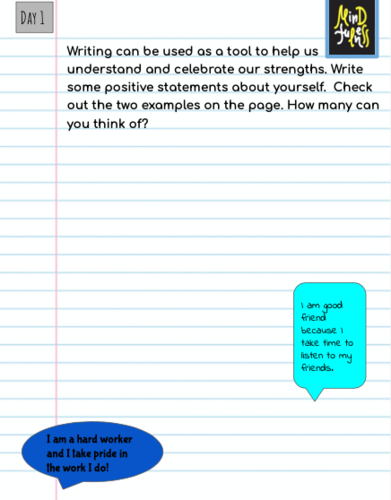 DAY 1
MinD
fulness
Writing can be used as a tool to help us
understand and celebrate our strengths. Write
some positive statements about yourself.  Check
out the two examples on the page. How many can
you think of?
I am good
friend
because I
take time to
listen to my
friends.
I am a hard worker
and I take pride in
the work I do!